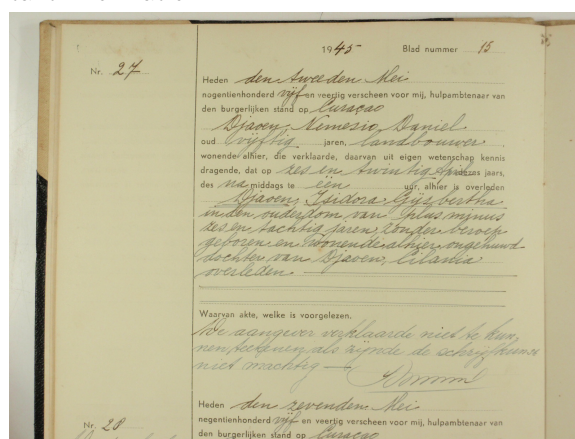 1945 Blad nummer 15
Nr. 27
Heden den tweeden Mei
negentienhonderd vijf en veertig verscheen voor mij, hulpambtenaar van
den burgerlijken stand op Curaçao
Djaoen, Nemesio Daniel
oud vijftig jaren, landbouwer,
wonende alhier, die verklaarde, daarvan uit eigen wetenschap kennis
dragende, dat op zes en twintig April dezes jaars,
des na middags te één uur, alhier is overleden
Djaoen, Isidora Gijsbertha
in den ouderdom van plus minus
zes en tachtig jaren, zonder beroep
geboren en wonende alhier, ongehuwd
dochter van Djaoen, Cilania
overleden
Waarvan akte, welke is voorgelezen.
De aangever verklaarde niet te kun-
nen teekenen als zijnde de schrijfkunst
niet machtig
Heden den zevenden Mei
Nr. 28
negentienhonderd vijf en veertig verscheen voor mij, hulpambtenaar van
den burgerlijken stand op Curaçao